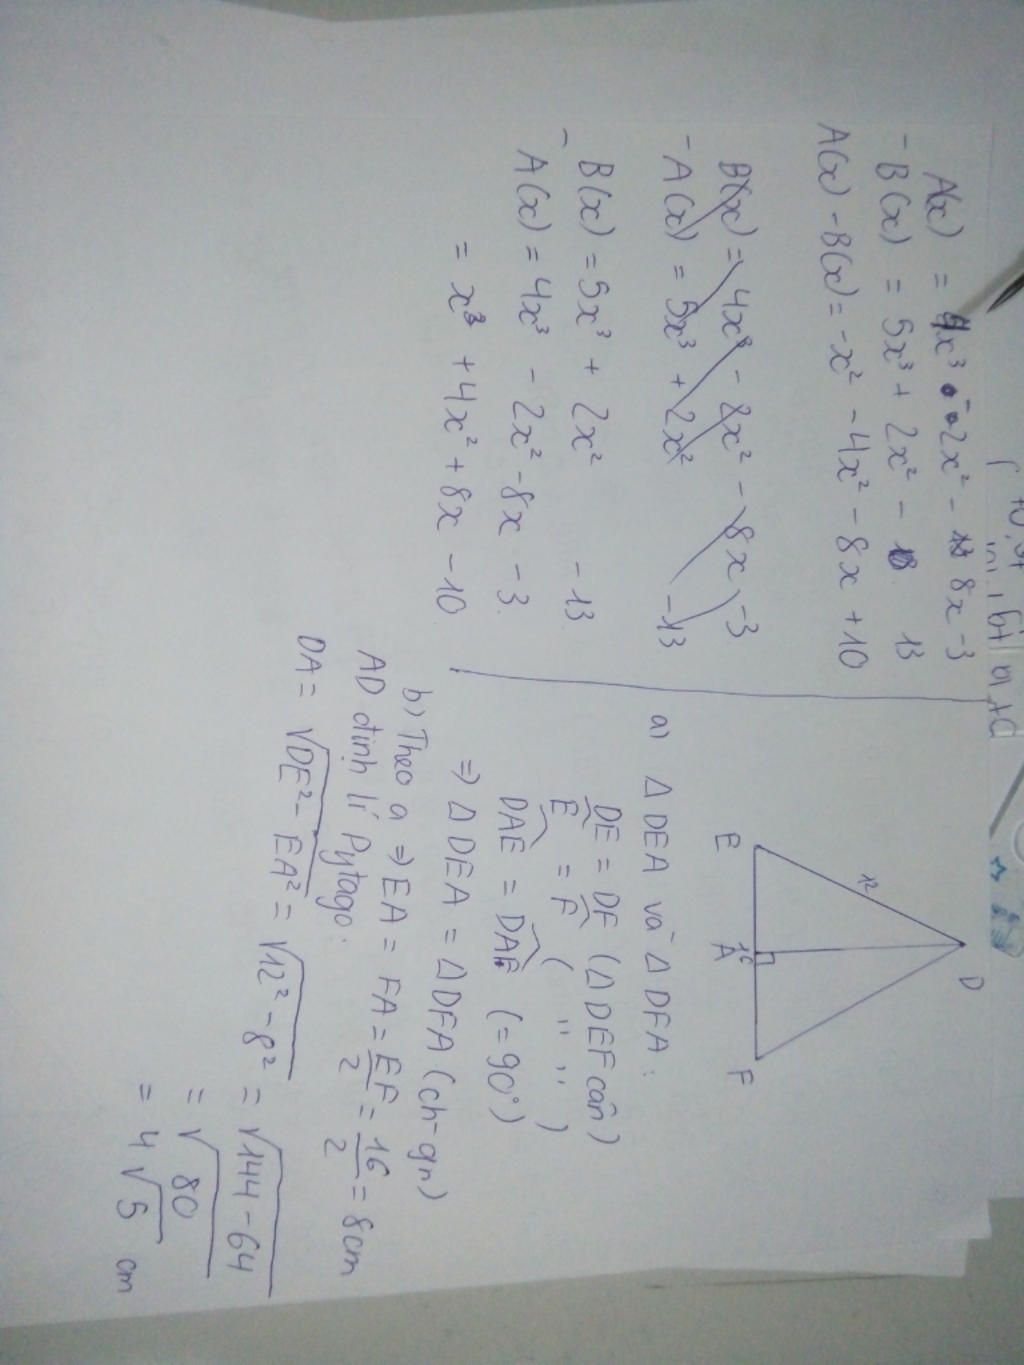 A(x) = 4x³ - 2x² - 8x - 3
- B(x) = 5x³ + 2x² - 13
A(x) - B(x) = -x² - 4x² - 8x + 10
B(x) = 4x³ - 2x² - 8x - 3
- A(x) = 5x³ + 2x² - 13
B(x) = 5x³ + 2x² - 13
- A(x) = 4x³ - 2x² - 8x - 3
= x³ + 4x² + 8x - 10
D
12
E A 16 F
a) Δ DEA và Δ DFA :
DE = DF (Δ DEF cân)
Ê = F̂ ( " " )
DAE = DAF (= 90°)
=> Δ DEA = Δ DFA (ch-gn)
b) Theo a => EA = FA = EF/2 = 16/2 = 8cm
AD định lí Pytago:
DA = √DE² - EA² = √12² - 8² = √144 - 64
= √80
= 4√5 cm